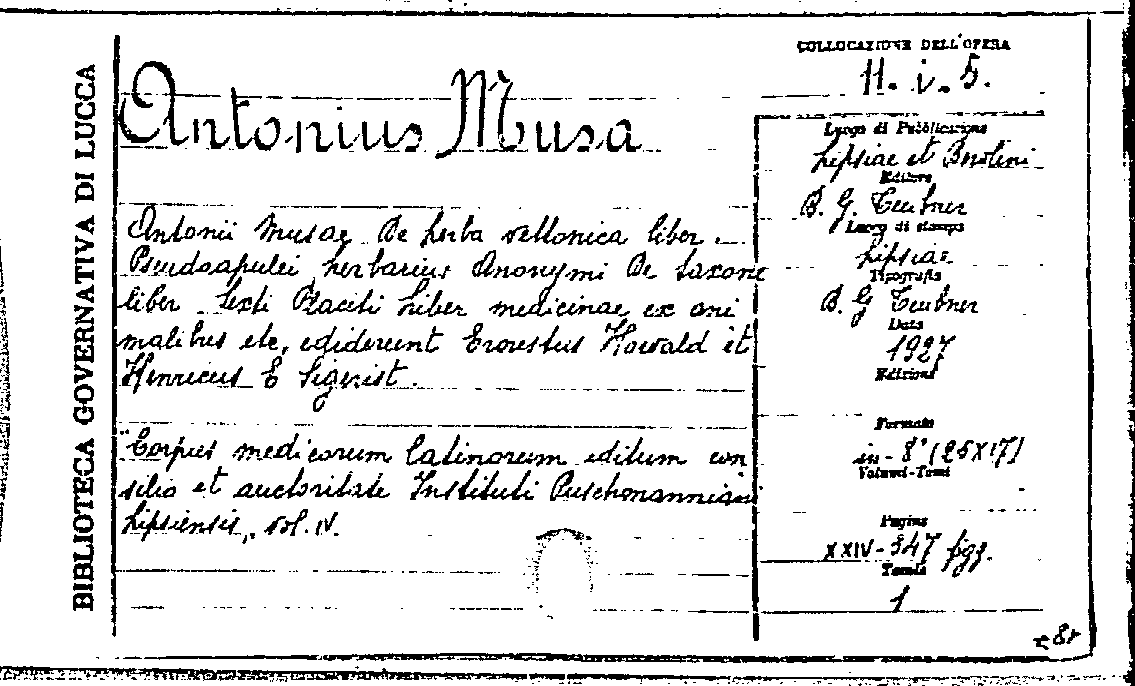 BIBLIOTECA GOVERNATIVA DI LUCCA
Antonius Musa
Antonii Musae De herba vettonica liber.
Pseudoapulei herbarius Anonymi De taxone
liber Sexti Placiti Liber medicinae ex ani
malibus etc, ediderunt Ernestus Howald et
Henricus E Sigerist.
"Corpus medicorum latinorum editum con
silio et auctoritate Instituti Puschmanniani
Lipsiensis, vol. IV.
COLLOCAZIONE DELL'OPERA
11. i. 5.
Luogo di Pubblicazione
Lipsiae et Berolini
Editore
B. G. Teubner
Luogo di stampa
Lipsiae
Tipografia
B. G Teubner
Data
1927
Edizione
Formato
in-8° (25x17)
Volumi-Tomi
Pagine
XXIV-347 figg.
Tavole
1